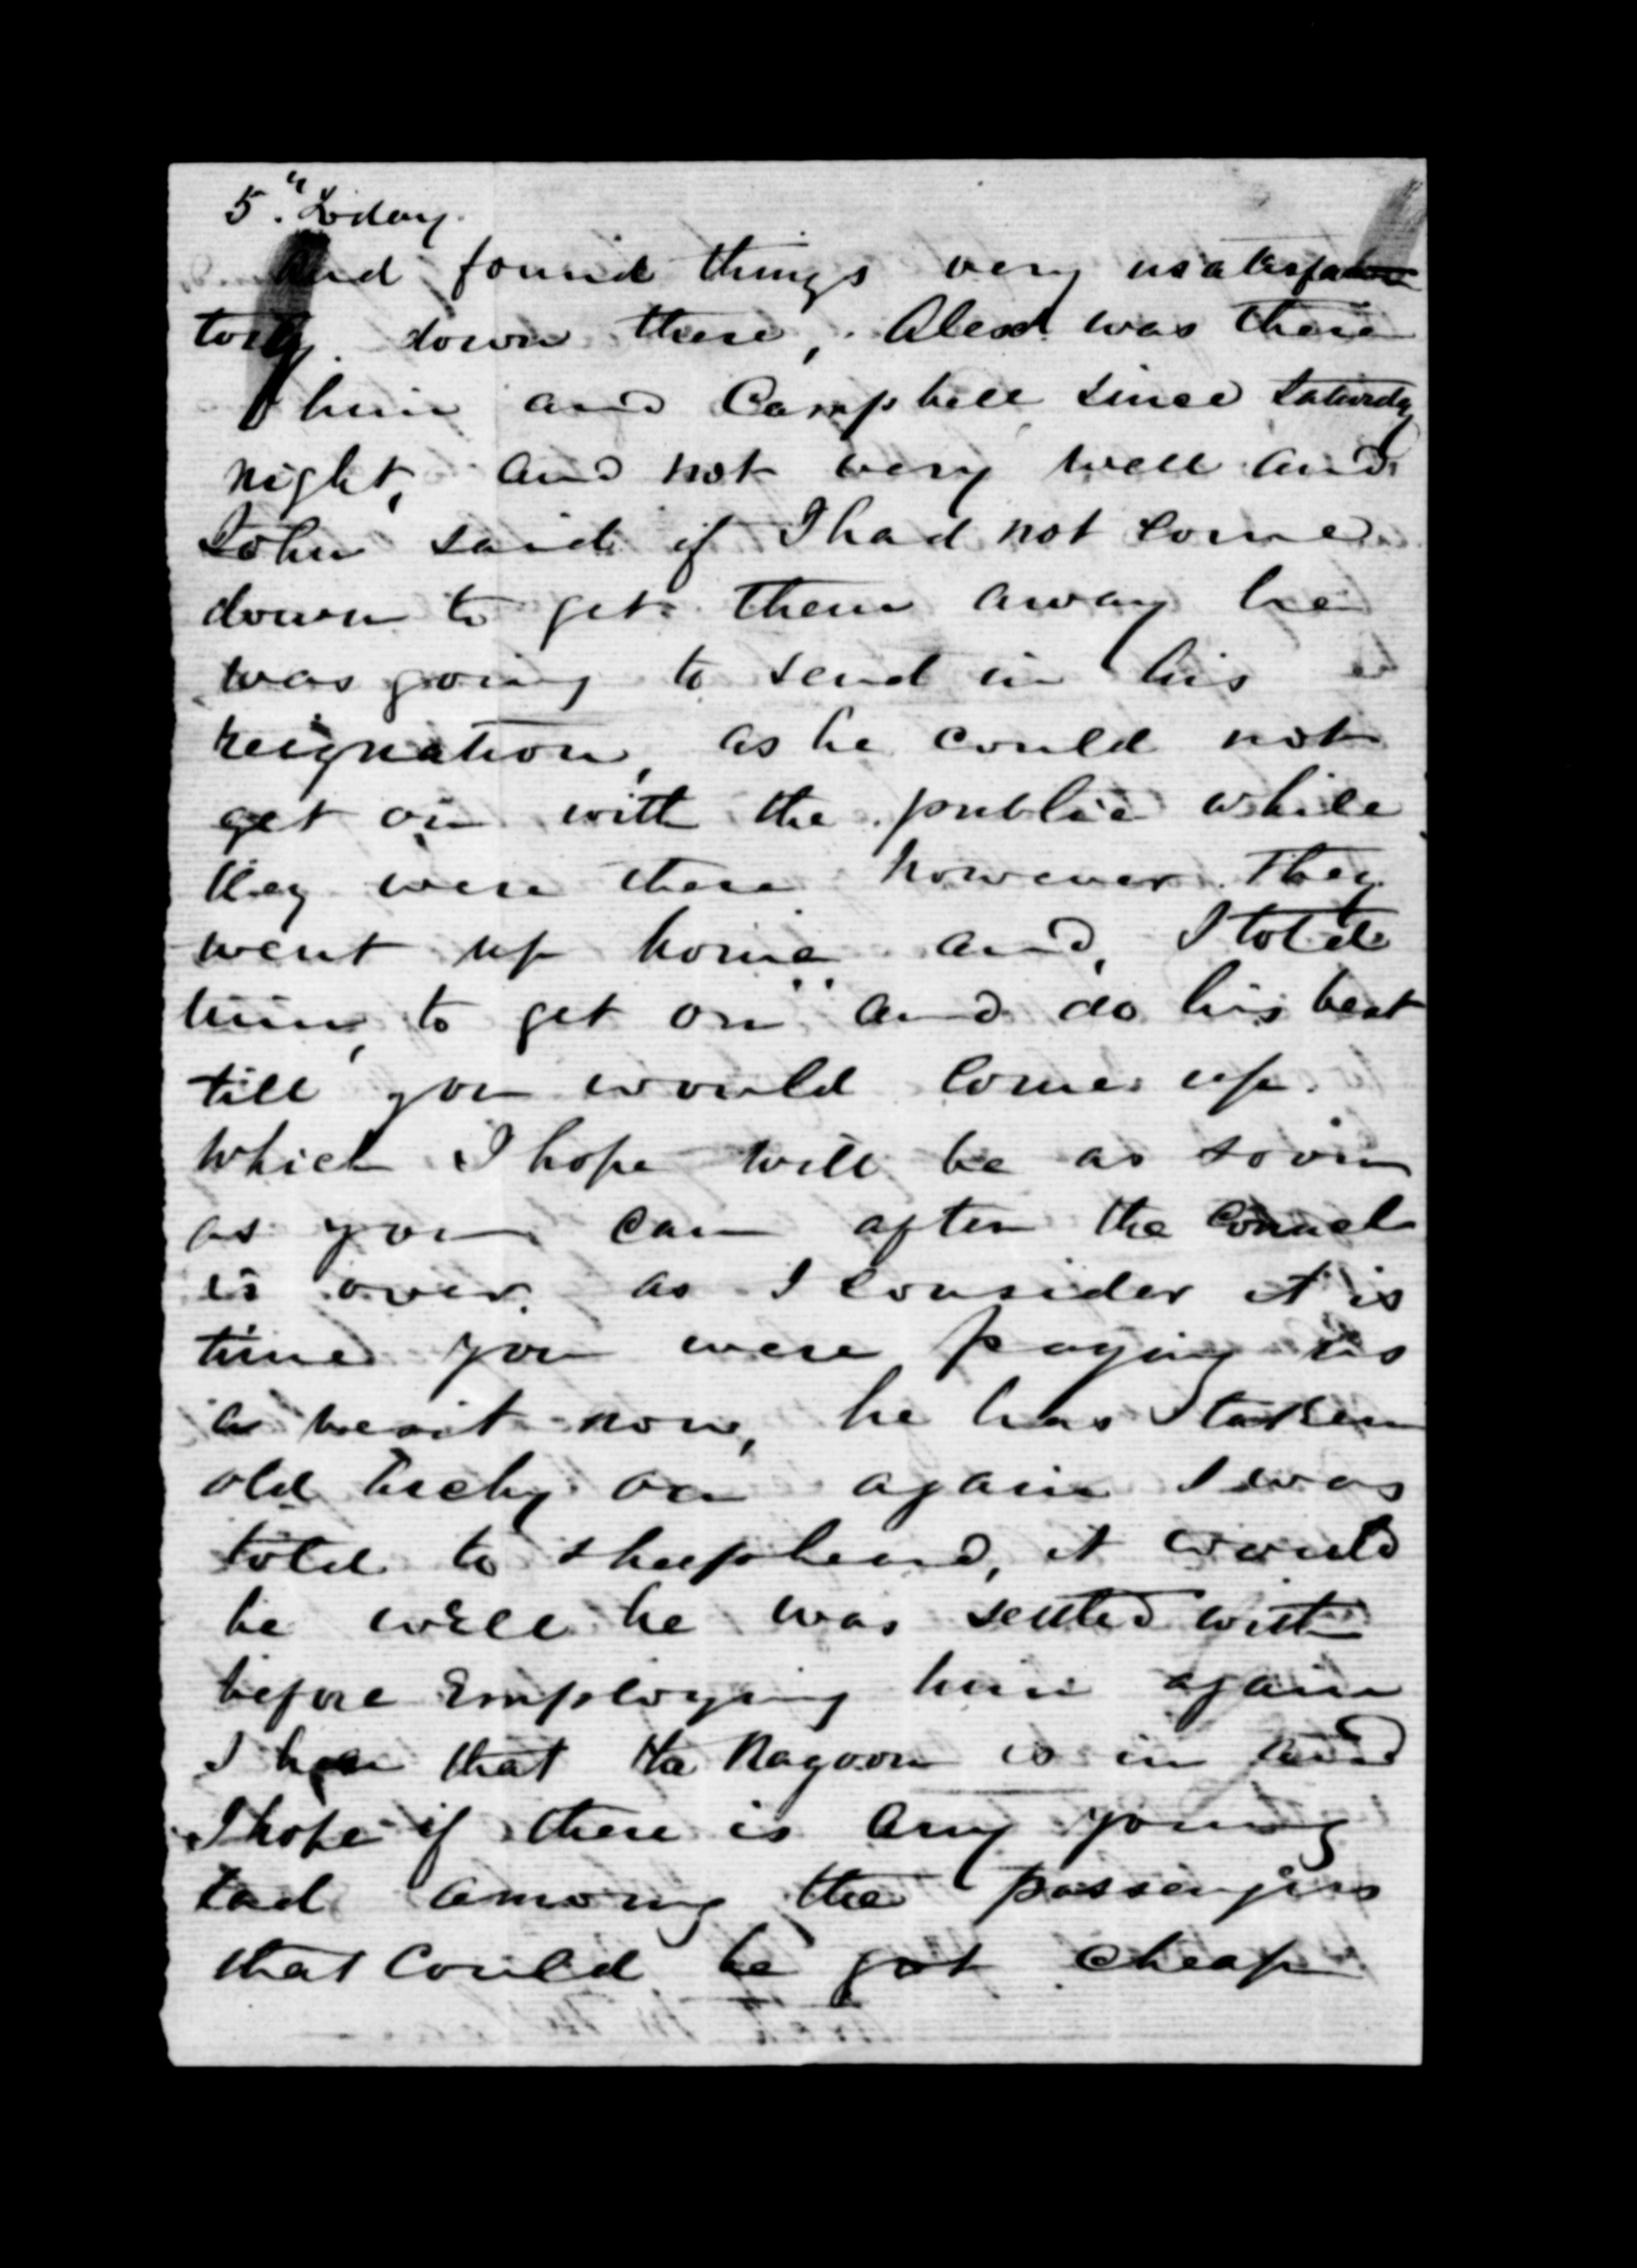 5." Today.
And found things very usatisfac
tory down there, Alexd. was there
him and Campbell since Saturday
night, and not very well and
John said if I had not come
down to get them away he
was going to send in his
resignation, as he could not
get on with the public while
they were there however they
went up home and, I told
him, to get on and do his best
till you would come up.
which I hope will be as soon
as you can after the Councel
is over. as I consider it is
time you were paying us
a visit now, he has taken
old on again I was
told to shepherd, it would
be well he was settled with
before employing him again
I hear that the Ragoon is in and
I hope if there is any young
lad among the passengers
that could be got cheap